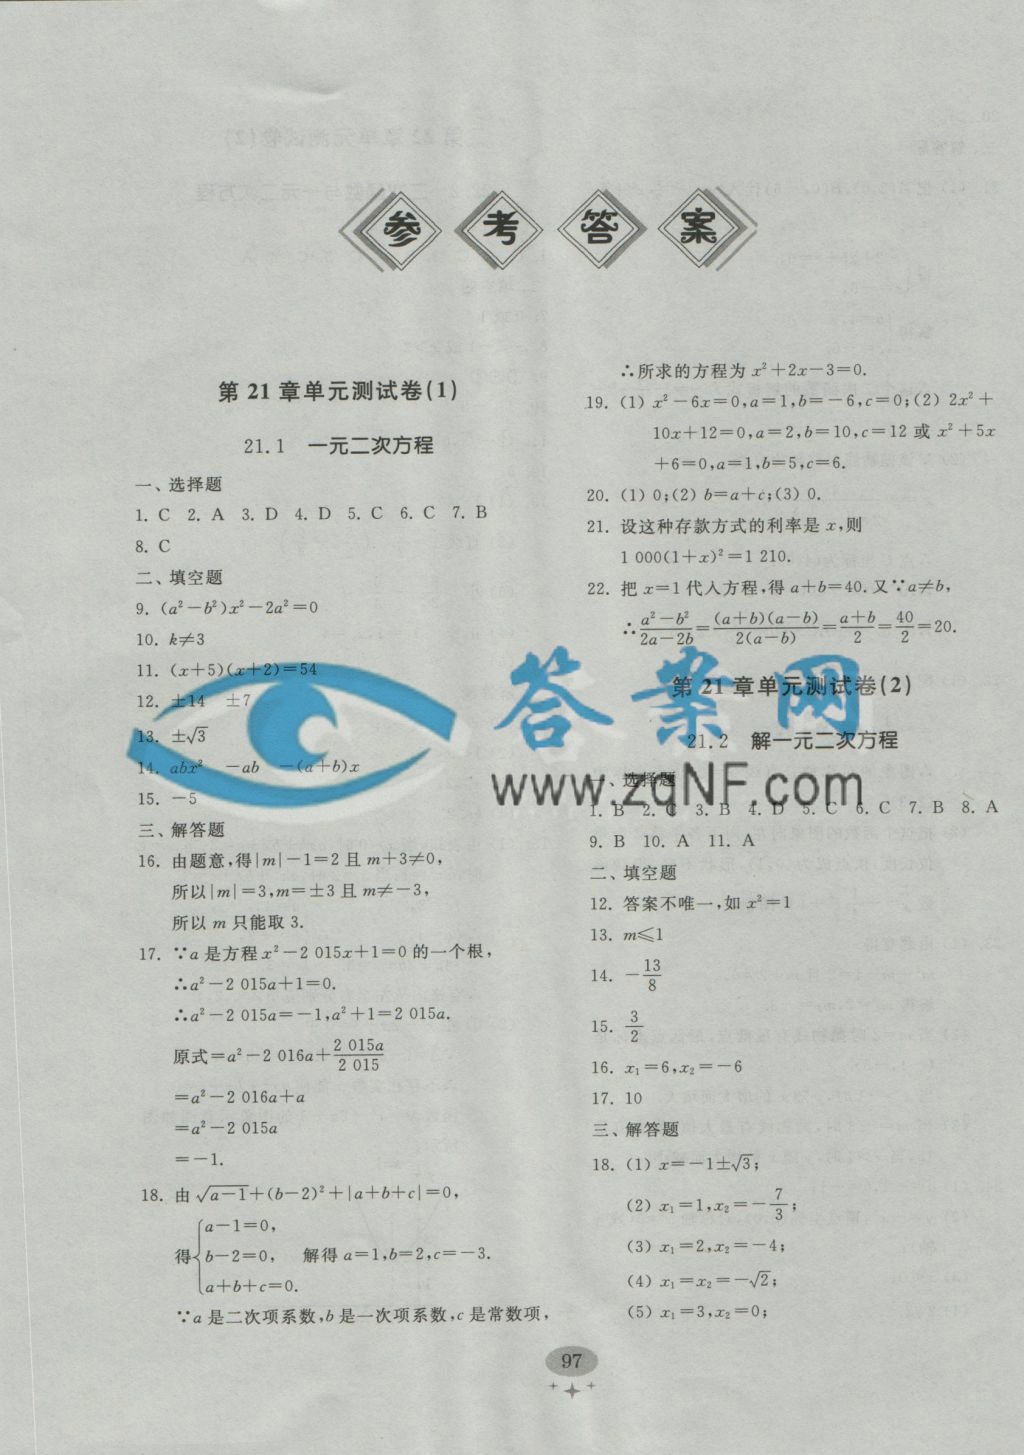 参考答案
第21章单元测试卷(1)
21.1 一元二次方程
一、选择题
1. C 2. A 3. D 4. D 5. C 6. C 7. B
8. C
二、填空题
9. (a²－b²)x²－2a²＝0
10. k≠3
11. (x＋5)(x＋2)＝54
12. ±14 ±7
13. ±√3
14. abx² －ab －(a＋b)x
15. －5
三、解答题
16. 由题意,得|m|－1＝2且m＋3≠0,
所以|m|＝3,m＝±3且m≠－3,
所以m只能取3.
17. ∵a是方程x²－2 015x＋1＝0的一个根,
∴a²－2 015a＋1＝0.
∴a²－2 015a＝－1,a²＋1＝2 015a.
原式＝a²－2 016a＋2 015a/2 015
＝a²－2 016a＋a
＝a²－2 015a
＝－1.
18. 由√(a－1)＋(b－2)²＋|a＋b＋c|＝0,
得{a－1＝0,
b－2＝0, 解得a＝1,b＝2,c＝－3.
a＋b＋c＝0.
∵a是二次项系数,b是一次项系数,c是常数项,
∴所求的方程为x²＋2x－3＝0.
19. (1) x²－6x＝0,a＝1,b＝－6,c＝0;(2) 2x²＋
10x＋12＝0,a＝2,b＝10,c＝12或x²＋5x
＋6＝0,a＝1,b＝5,c＝6.
20. (1) 0;(2) b＝a＋c;(3) 0.
21. 设这种存款方式的利率是x,则
1 000(1＋x)²＝1 210.
22. 把x＝1代入方程,得a＋b＝40.又∵a≠b,
∴(a²－b²)/(2a－2b)＝(a＋b)(a－b)/2(a－b)＝(a＋b)/2＝40/2＝20.
第21章单元测试卷(2)
21.2 解一元二次方程
一、选择题
1. B 2. C 3. B 4. D 5. C 6. C 7. B 8. A
9. B 10. A 11. A
二、填空题
12. 答案不唯一,如x²＝1
13. m≤1
14. －13/8
15. 3/2
16. x₁＝6,x₂＝－6
17. 10
三、解答题
18. (1) x＝－1±√3;
(2) x₁＝1,x₂＝－7/3;
(3) x₁＝2,x₂＝－4;
(4) x₁＝x₂＝－√2;
(5) x₁＝3,x₂＝0;
97
答案网
www.zqNF.com